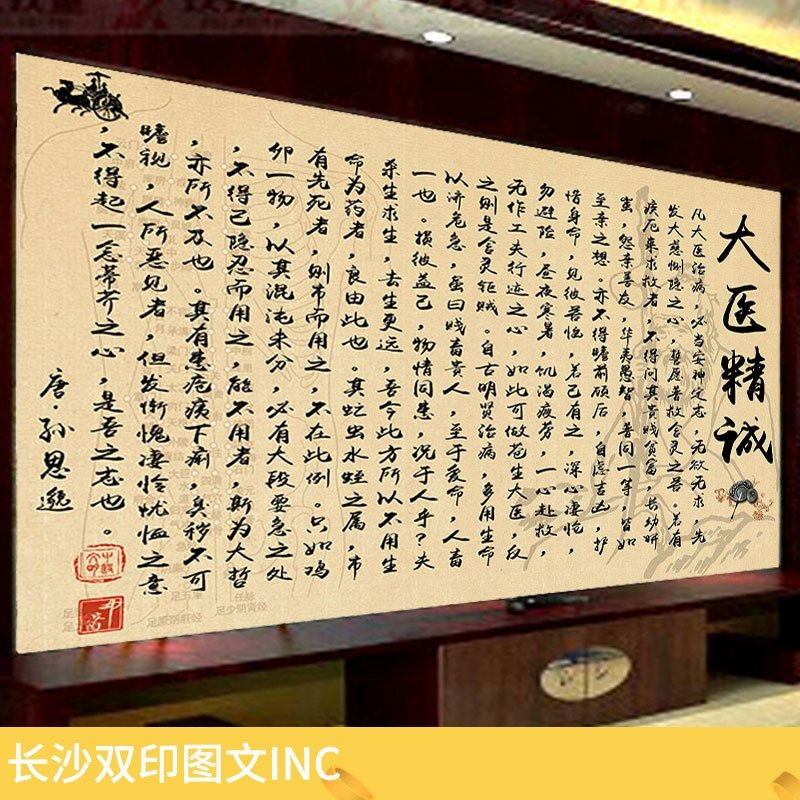 大医精诚
凡大医治病，必当安神定志，无欲无求，先
发大慈恻隐之心，誓愿普救含灵之苦。若有
疾厄来求救者，不得问其贵贱贫富，长幼妍
蚩，怨亲善友，华夷愚智，普同一等，皆如
至亲之想。亦不得瞻前顾后，自虑吉凶，护
惜身命，见彼苦恼，若己有之，深心凄怆，
勿避险，昼夜寒暑，饥渴疲劳，一心赴救，
无作工夫行迹之心，如此可做苍生大医，反
之则是含灵钜贼。自古明贤治病，多用生命
以济危急，虽曰贱畜贵人，至于爱命，人畜
一也。损彼益己，物情同患，况于人乎？夫
杀生求生，去生更远，吾今此方所以不用生
命为药者，良由此也。其虻虫水蛭之属，市
有先死者，则市而用之，不在此例。只如鸡
卵一物，以其混沌未分，必有大段要急之处
，不得已隐忍而用之，能不用者，斯为大哲
，亦所不及也。其有患疮痍下痢，臭秽不可
瞻视，人所恶见者，但发惭愧凄怜忧恤之意
，不得起一念蒂芥之心，是吾之志也。
唐·孙思邈
足少阴肾经
足厥阴肝经
长沙双印图文INC